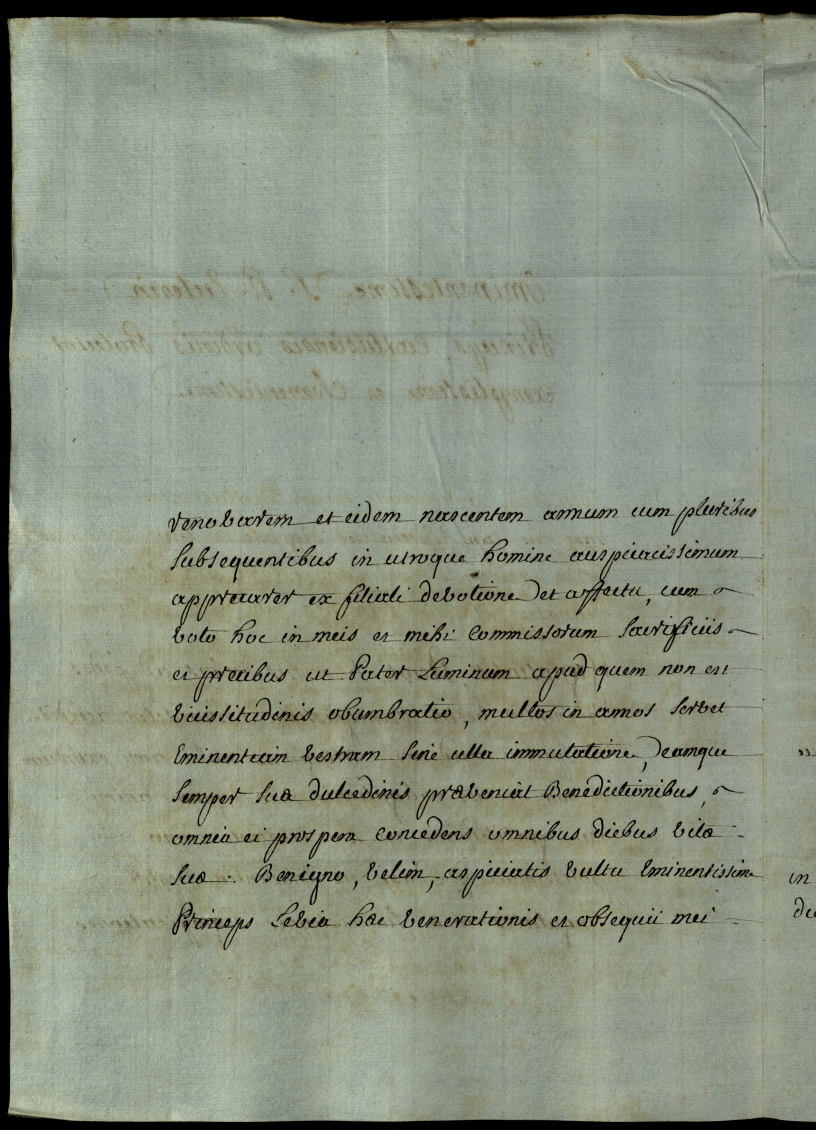 venerarem et eidem nascentem annum cum pluribus
subsequentibus in utroque homine auspicatissimum
apprecarer ex filiali devotione et affectu, cum
voto hoc in meis et mihi commissorum sacrificiis
et precibus ut Pater Luminum apud quem non est
vicissitudinis obumbratio, multos in annos servet
Eminentiam Vestram sine ulla immutatione, eamque
semper suæ dulcedinis præveniat Benedictionibus,
omnia ei prospera concedens omnibus diebus vitæ
suæ. Benigno, velim, aspiciatis vultu Eminentissime
Princeps Levia hæc venerationis et obsequii mei
in